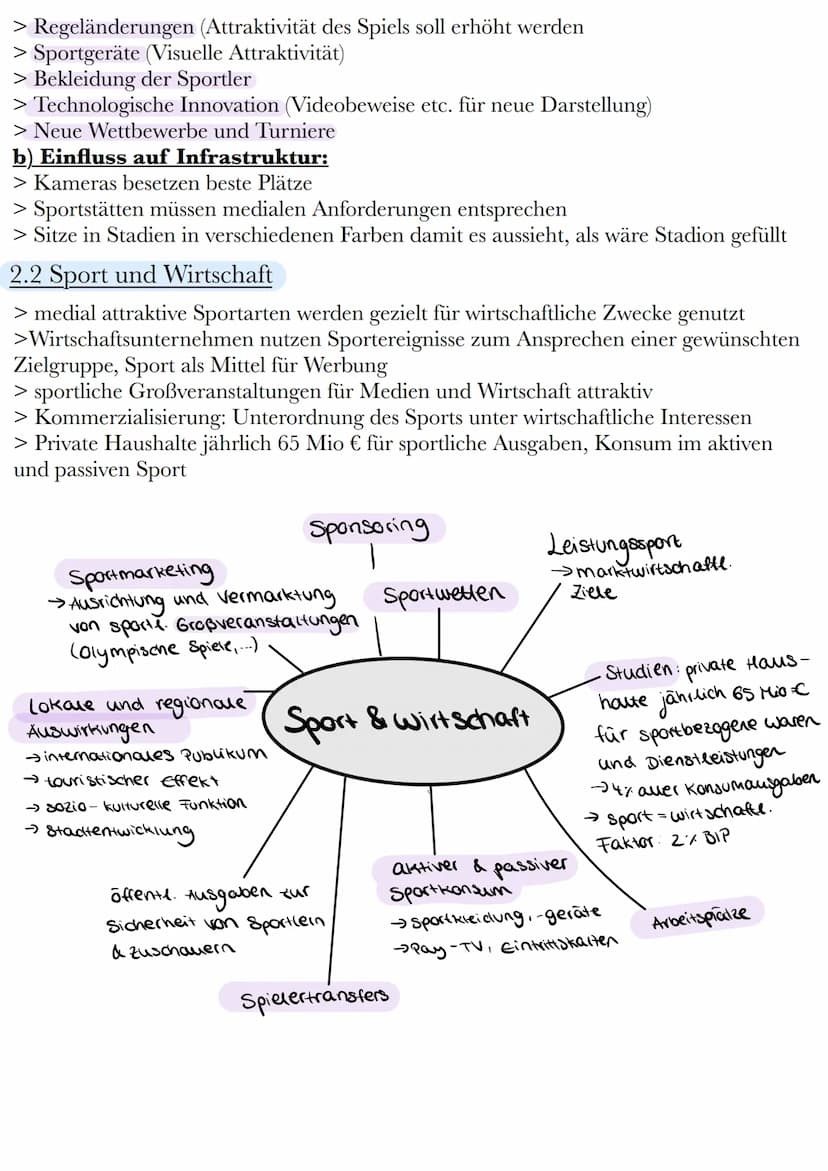 > Regeländerungen (Attraktivität des Spiels soll erhöht werden
> Sportgeräte (Visuelle Attraktivität)
> Bekleidung der Sportler
> Technologische Innovation (Videobeweise etc. für neue Darstellung)
> Neue Wettbewerbe und Turniere
b) Einfluss auf Infrastruktur:
> Kameras besetzen beste Plätze
> Sportstätten müssen medialen Anforderungen entsprechen
> Sitze in Stadien in verschiedenen Farben damit es aussieht, als wäre Stadion gefüllt
2.2 Sport und Wirtschaft
> medial attraktive Sportarten werden gezielt für wirtschaftliche Zwecke genutzt
>Wirtschaftsunternehmen nutzen Sportereignisse zum Ansprechen einer gewünschten
Zielgruppe, Sport als Mittel für Werbung
> sportliche Großveranstaltungen für Medien und Wirtschaft attraktiv
> Kommerzialisierung: Unterordnung des Sports unter wirtschaftliche Interessen
> Private Haushalte jährlich 65 Mio € für sportliche Ausgaben, Konsum im aktiven
und passiven Sport
Sponsoring
Sportmarketing
→ Ausrichtung und Vermarktung
von sportl. Großveranstaltungen
(Olympische Spiele,...)
Sportwetten
Leistungssport
→ marktwirtschaftl.
Ziele
Sport & Wirtschaft
Lokale und regionale
Auswirkungen
→ internationales Publikum
→ touristischer Effekt
→ sozio-kulturelle Funktion
→ Stadtentwicklung
Studien: private Haus-
halte jährlich 65 Mio €
für sportbezogene Waren
und Dienstleistungen
→ 4% aller Konsumausgaben
→ Sport = wirtschaftl.
Faktor: 2% BIP
öffentl. Ausgaben zur
Sicherheit von Sportlern
& Zuschauern
aktiver & passiver
Sportkonsum
→ Sportkleidung, -geräte
→ Pay-TV, Eintrittskarten
Arbeitsplätze
Spielertransfers